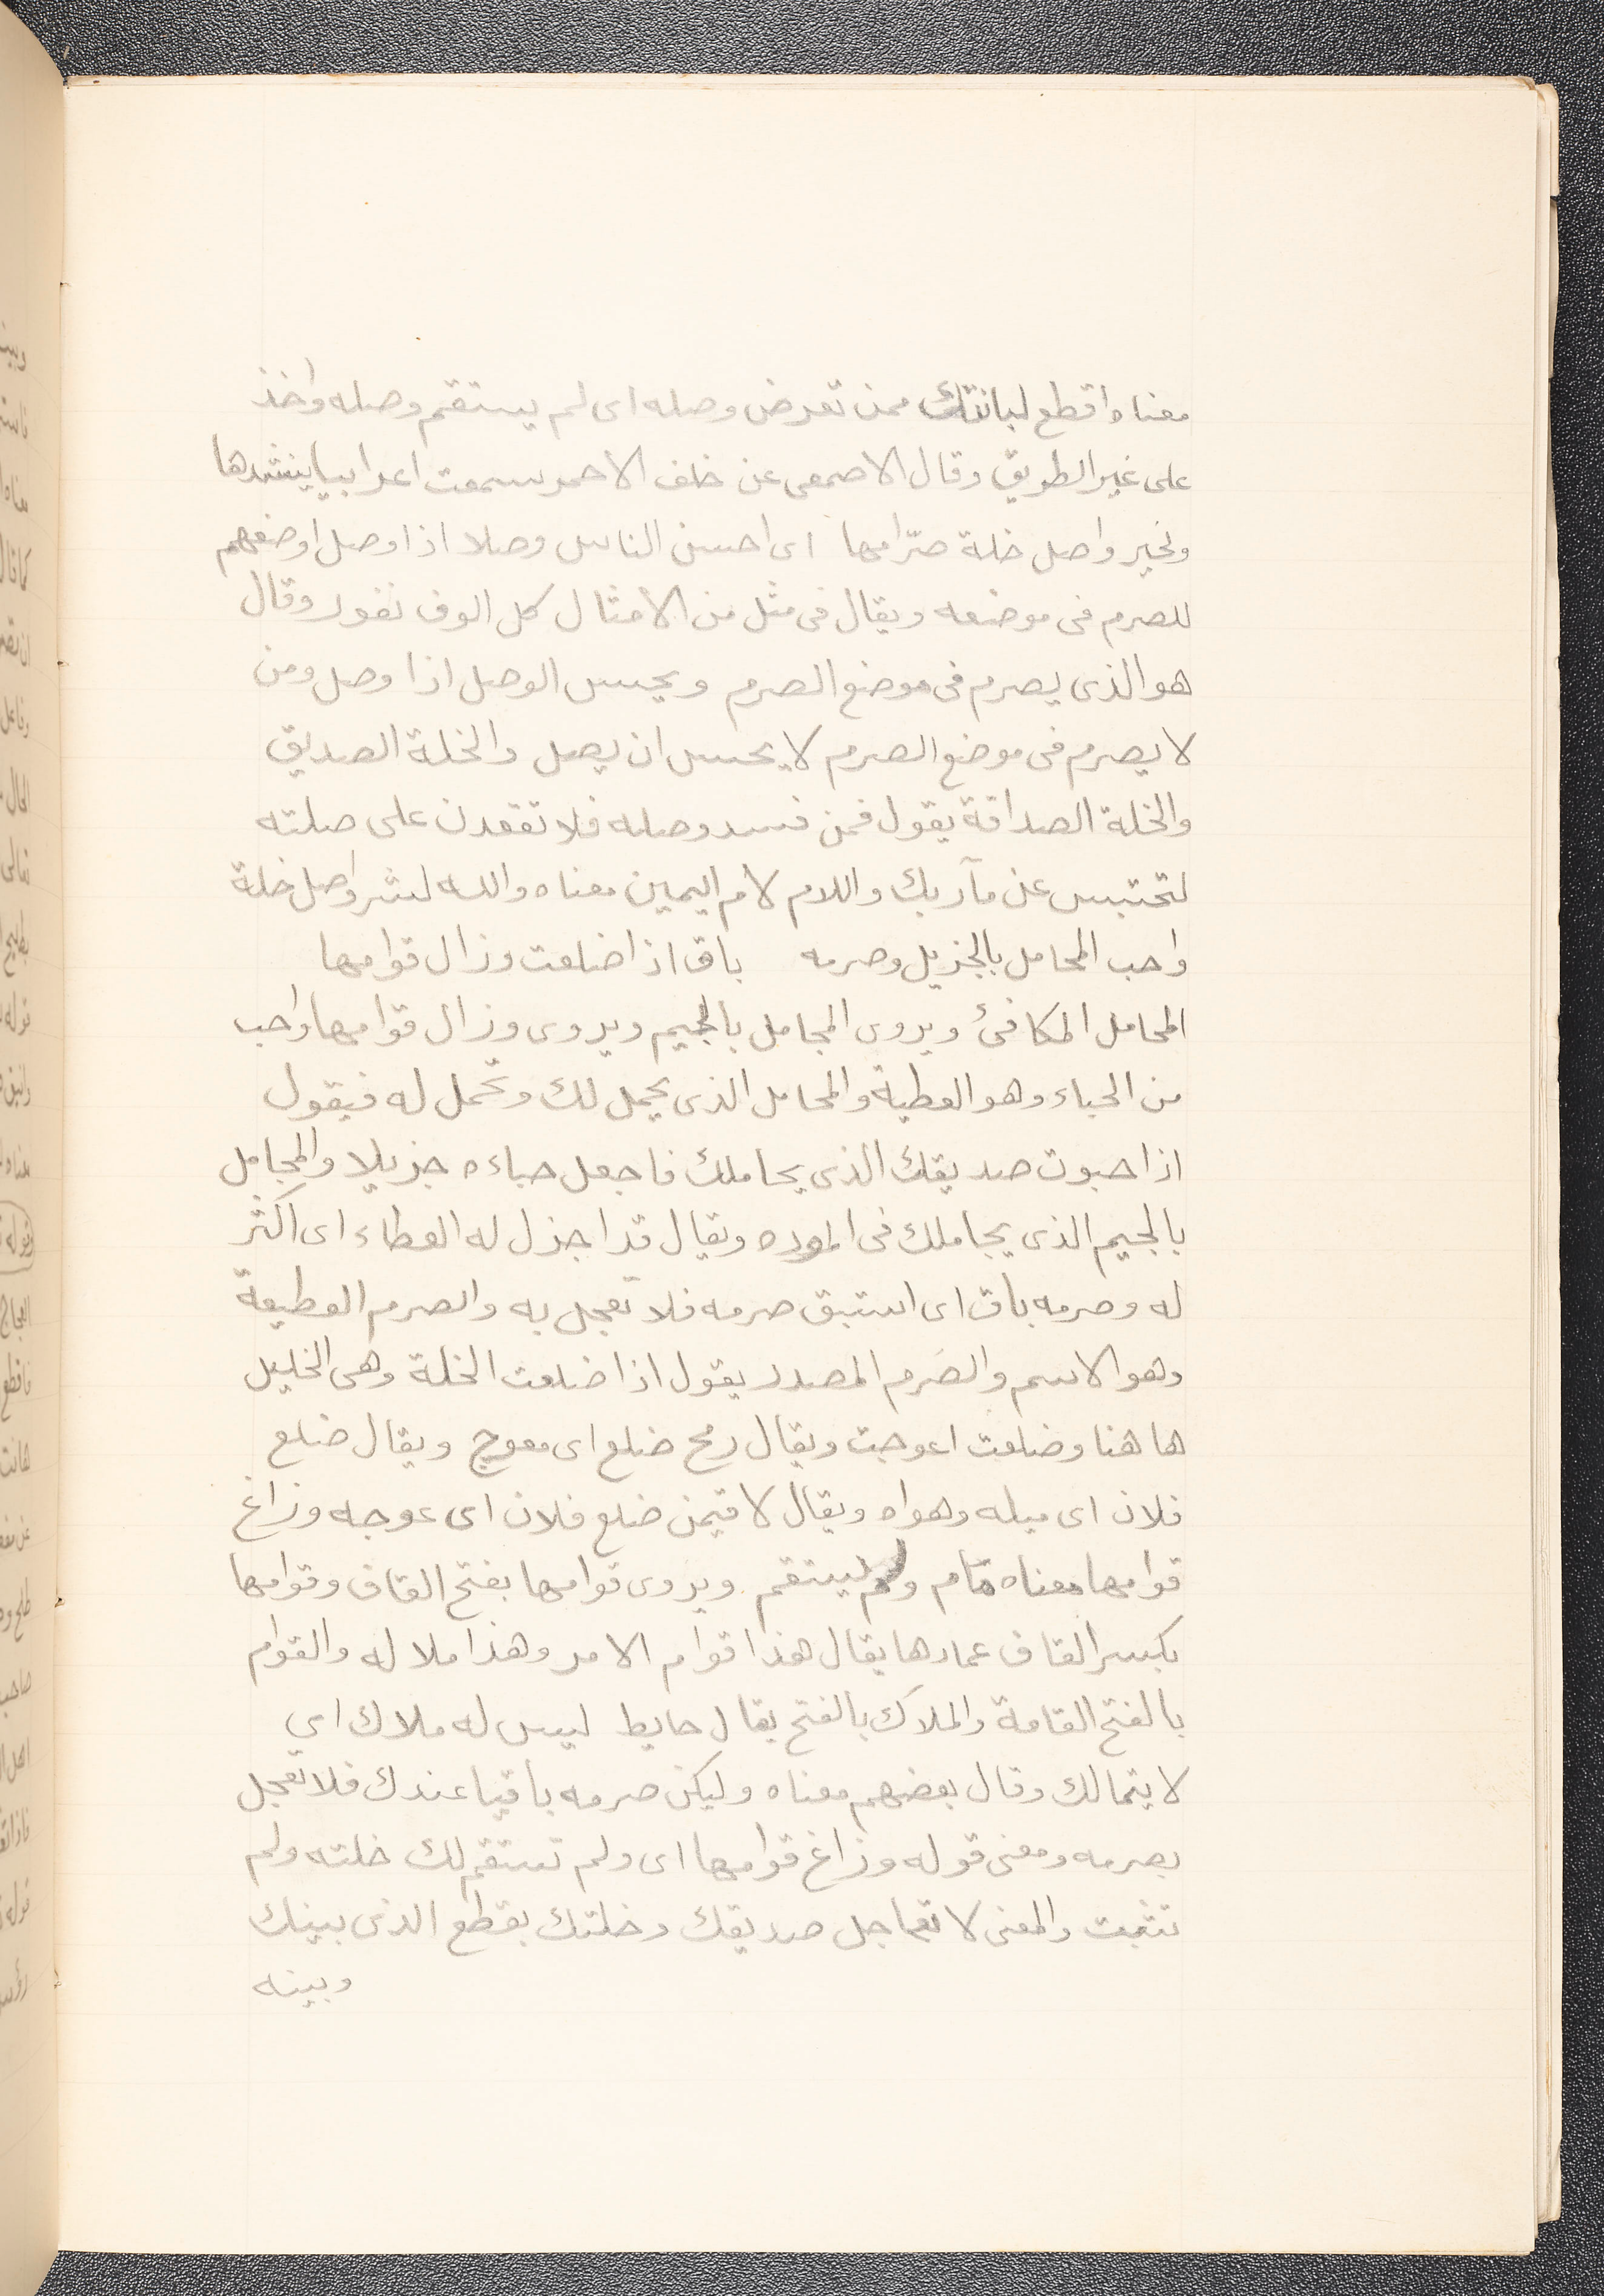 معناه اقطع لبانتك ممن تعرض وصله اى لم يستقم وصله واخذ
على غير الطريق وقال الاصمعى عن خلف الاحمر سمعت اعرابيا ينشدها
ولخير واصل خلة صرّامها اى احسن الناس وصلا اذا وصل اوضعهم
للصرم فى موضعه ويقال فى مثل من الامثال كل الوف نفور وقال
هو الذى يصرم فى موضع الصرم ويحسن الوصل اذا وصل ومن
لا يصرم فى موضع الصرم لا يحسن ان يصل والخلة الصديق
والخلة الصداقة يقول فمن فسد وصله فلا تقعدن على صلته
لتحتبس عن مآربك واللام لام اليمين معناه والله لشر واصل خلة
واحب المحامل بالجزيل وصرمه باق اذا ضلعت وزال قوامها
المحامل المكافئ ويروى المجامل بالجيم ويروى وزال قوامها واحب
من الحباء وهو العطية والمحامل الذى يحمل لك وتحمل له فيقول
اذا حبوت صديقك الذى يحاملك فاجعل حباءه جزيلا والمجامل
بالجيم الذى يجاملك فى الموده ويقال قد اجزل له العطاء اى اكثر
له وصرمه باق اى استبق صرمه فلا تعجل به والصرم القطيعة
وهو الاسم والصَرم المصدر يقول اذا ضلعت الخلة وهى الخليل
هاهنا وضلعت اعوجت ويقال رمح ضلع اى معوج ويقال ضلع
فلان اى ميله وهواه ويقال لاقيمن ضلع فلان اى عوجه وزاغ
قوامها معناه مام ولم يستقم ويروى قوامها بفتح القاف وقوامها
بكسر القاف عمادها يقال هذا قوام الامر وهذا ملاك له والقوام
بالفتح القامة والملاك بالفتح يقال حايط ليس له ملاك اي
لا يتمالك وقال بعضهم معناه وليكن صرمه باقيا عندك فلا تعجل
بصرمه ومعنى قوله وزاغ قوامها اى ولم تستقم لك خلته ولم
تثبت والمعنى لا تعاجل صديقك وخلتك بقطع الذى بينك
وبينه